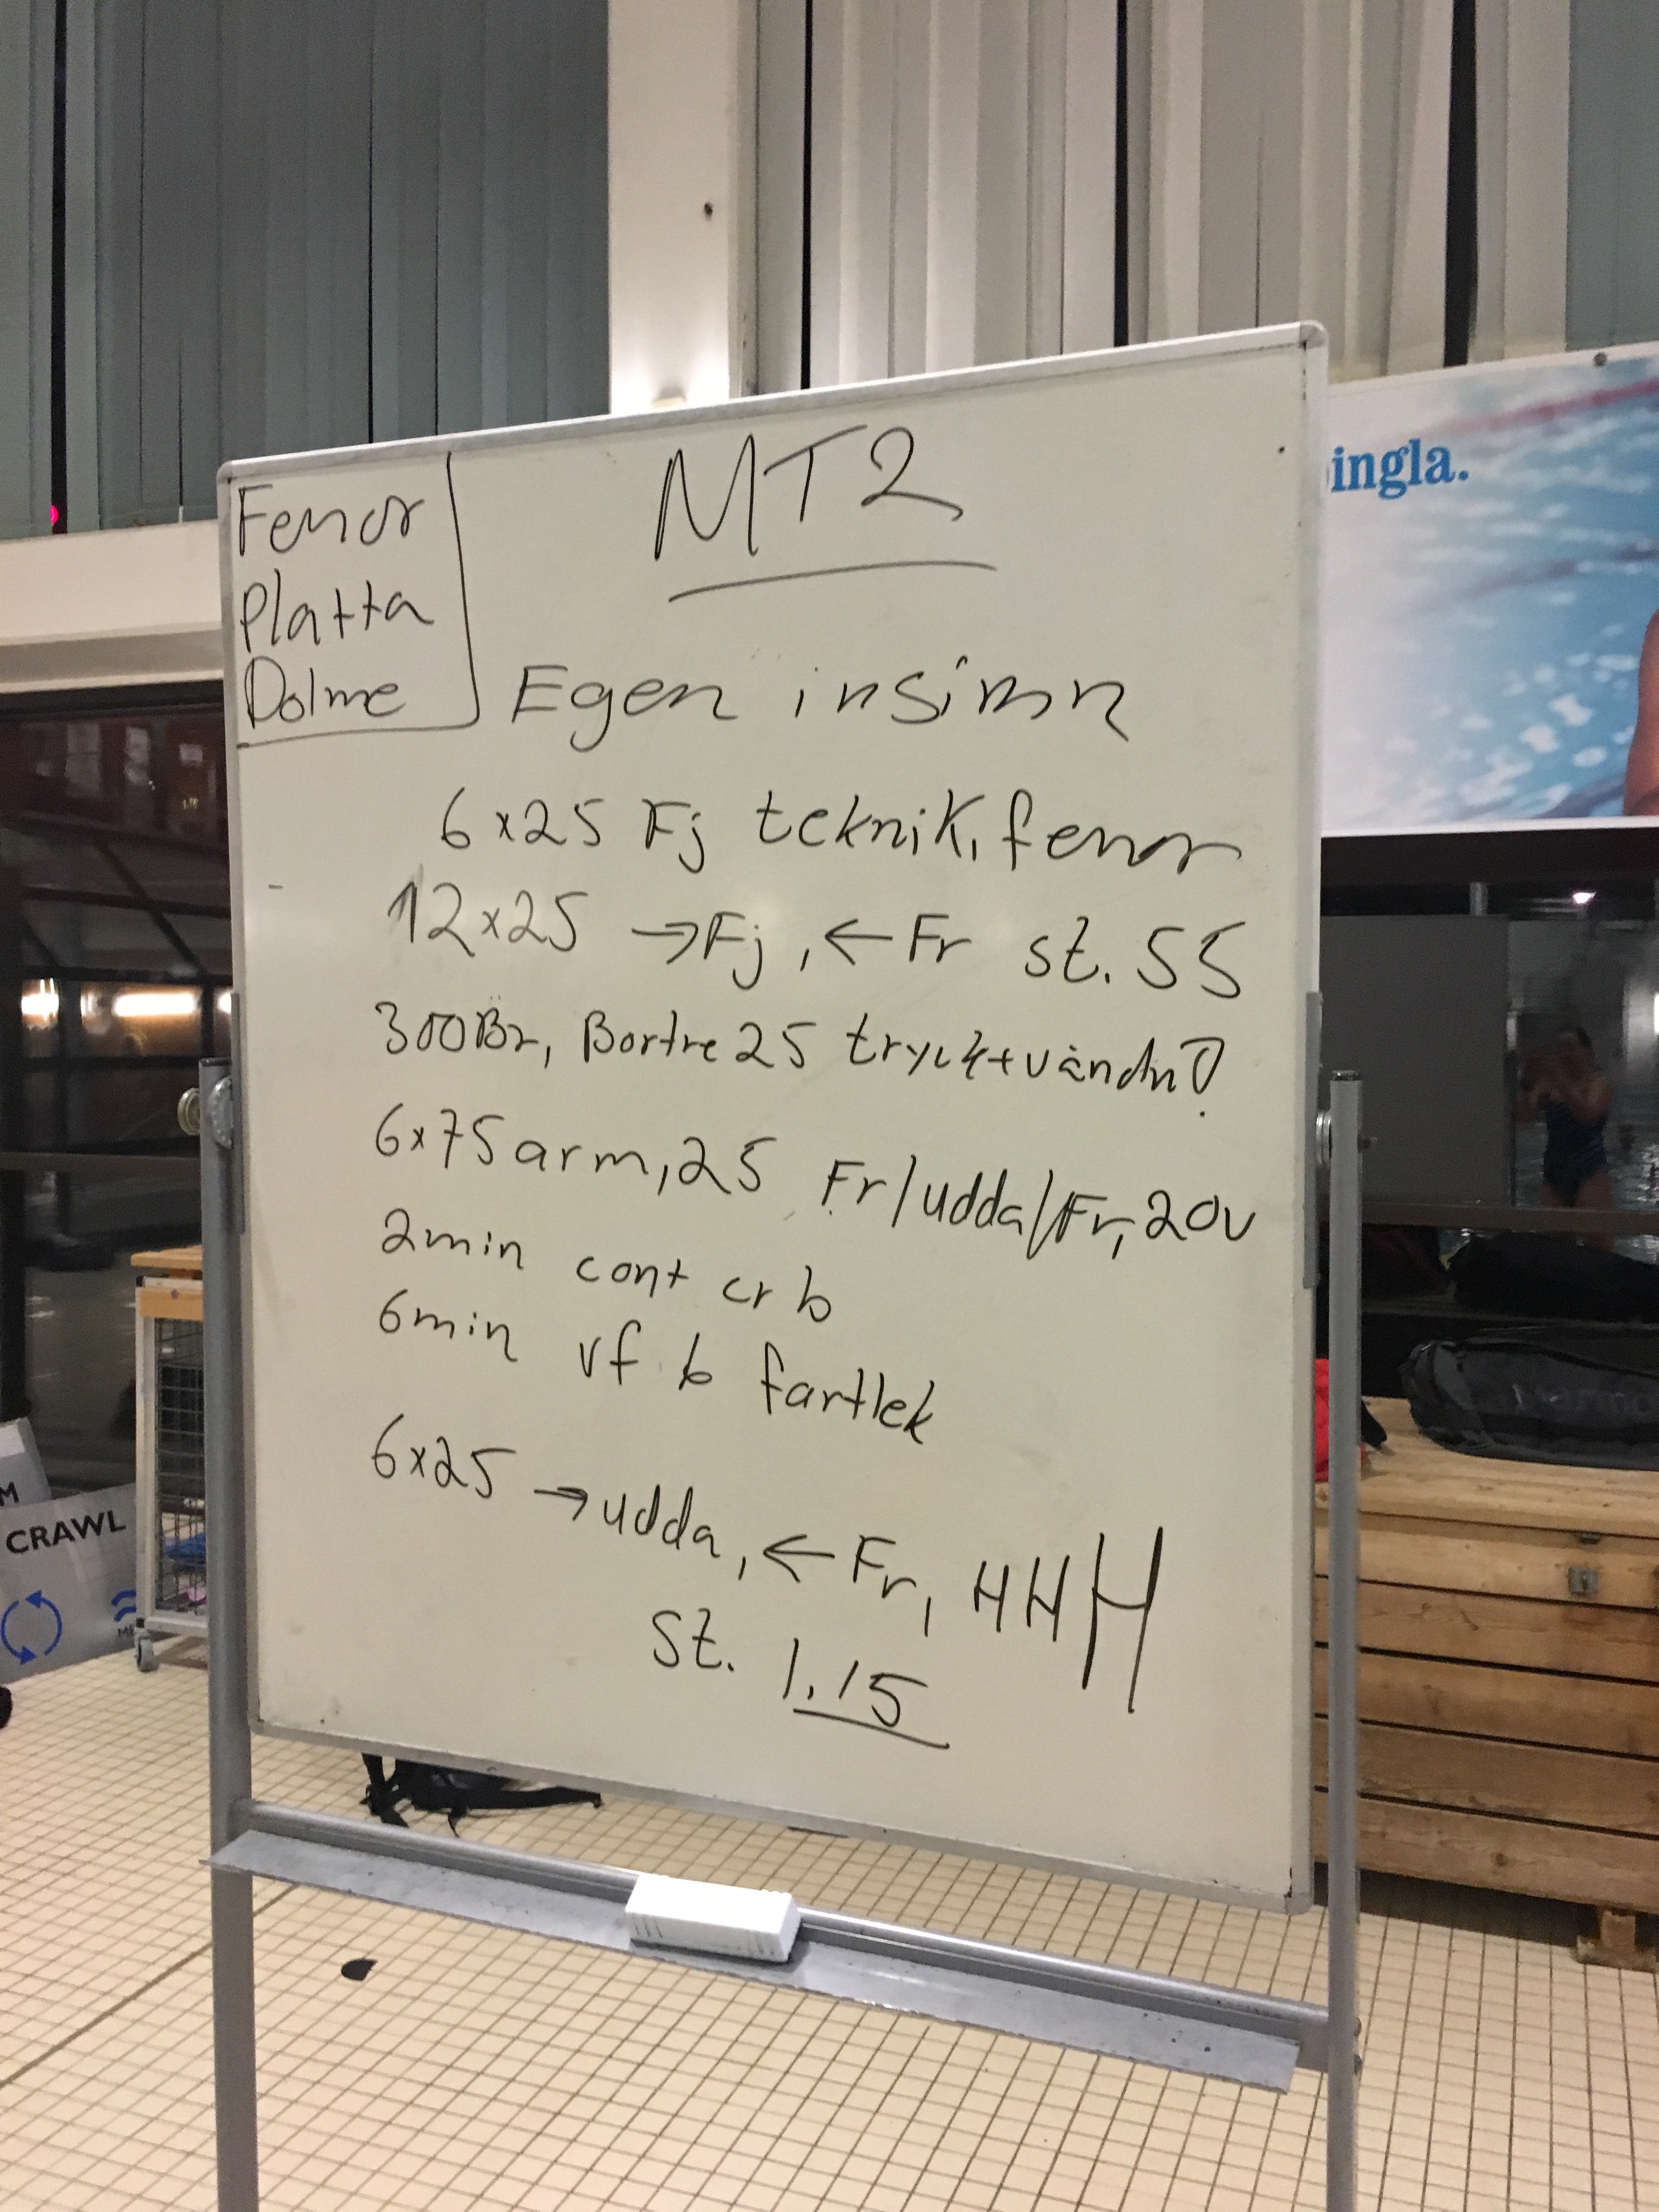 Fenor
Platta
Dolme
MT2
Egen insimn
6x25 Fj teknik, fenor
12x25 →Fj, ←Fr st. 55
300Br, Bortre 25 tryck+vändn!
6x75 arm, 25 Fr/udda/Fr, 20v
2min cont cr b
6min vf b fartlek
6x25 →udda, ←Fr, HHH
St. 1.15
ingla.
CRAWL